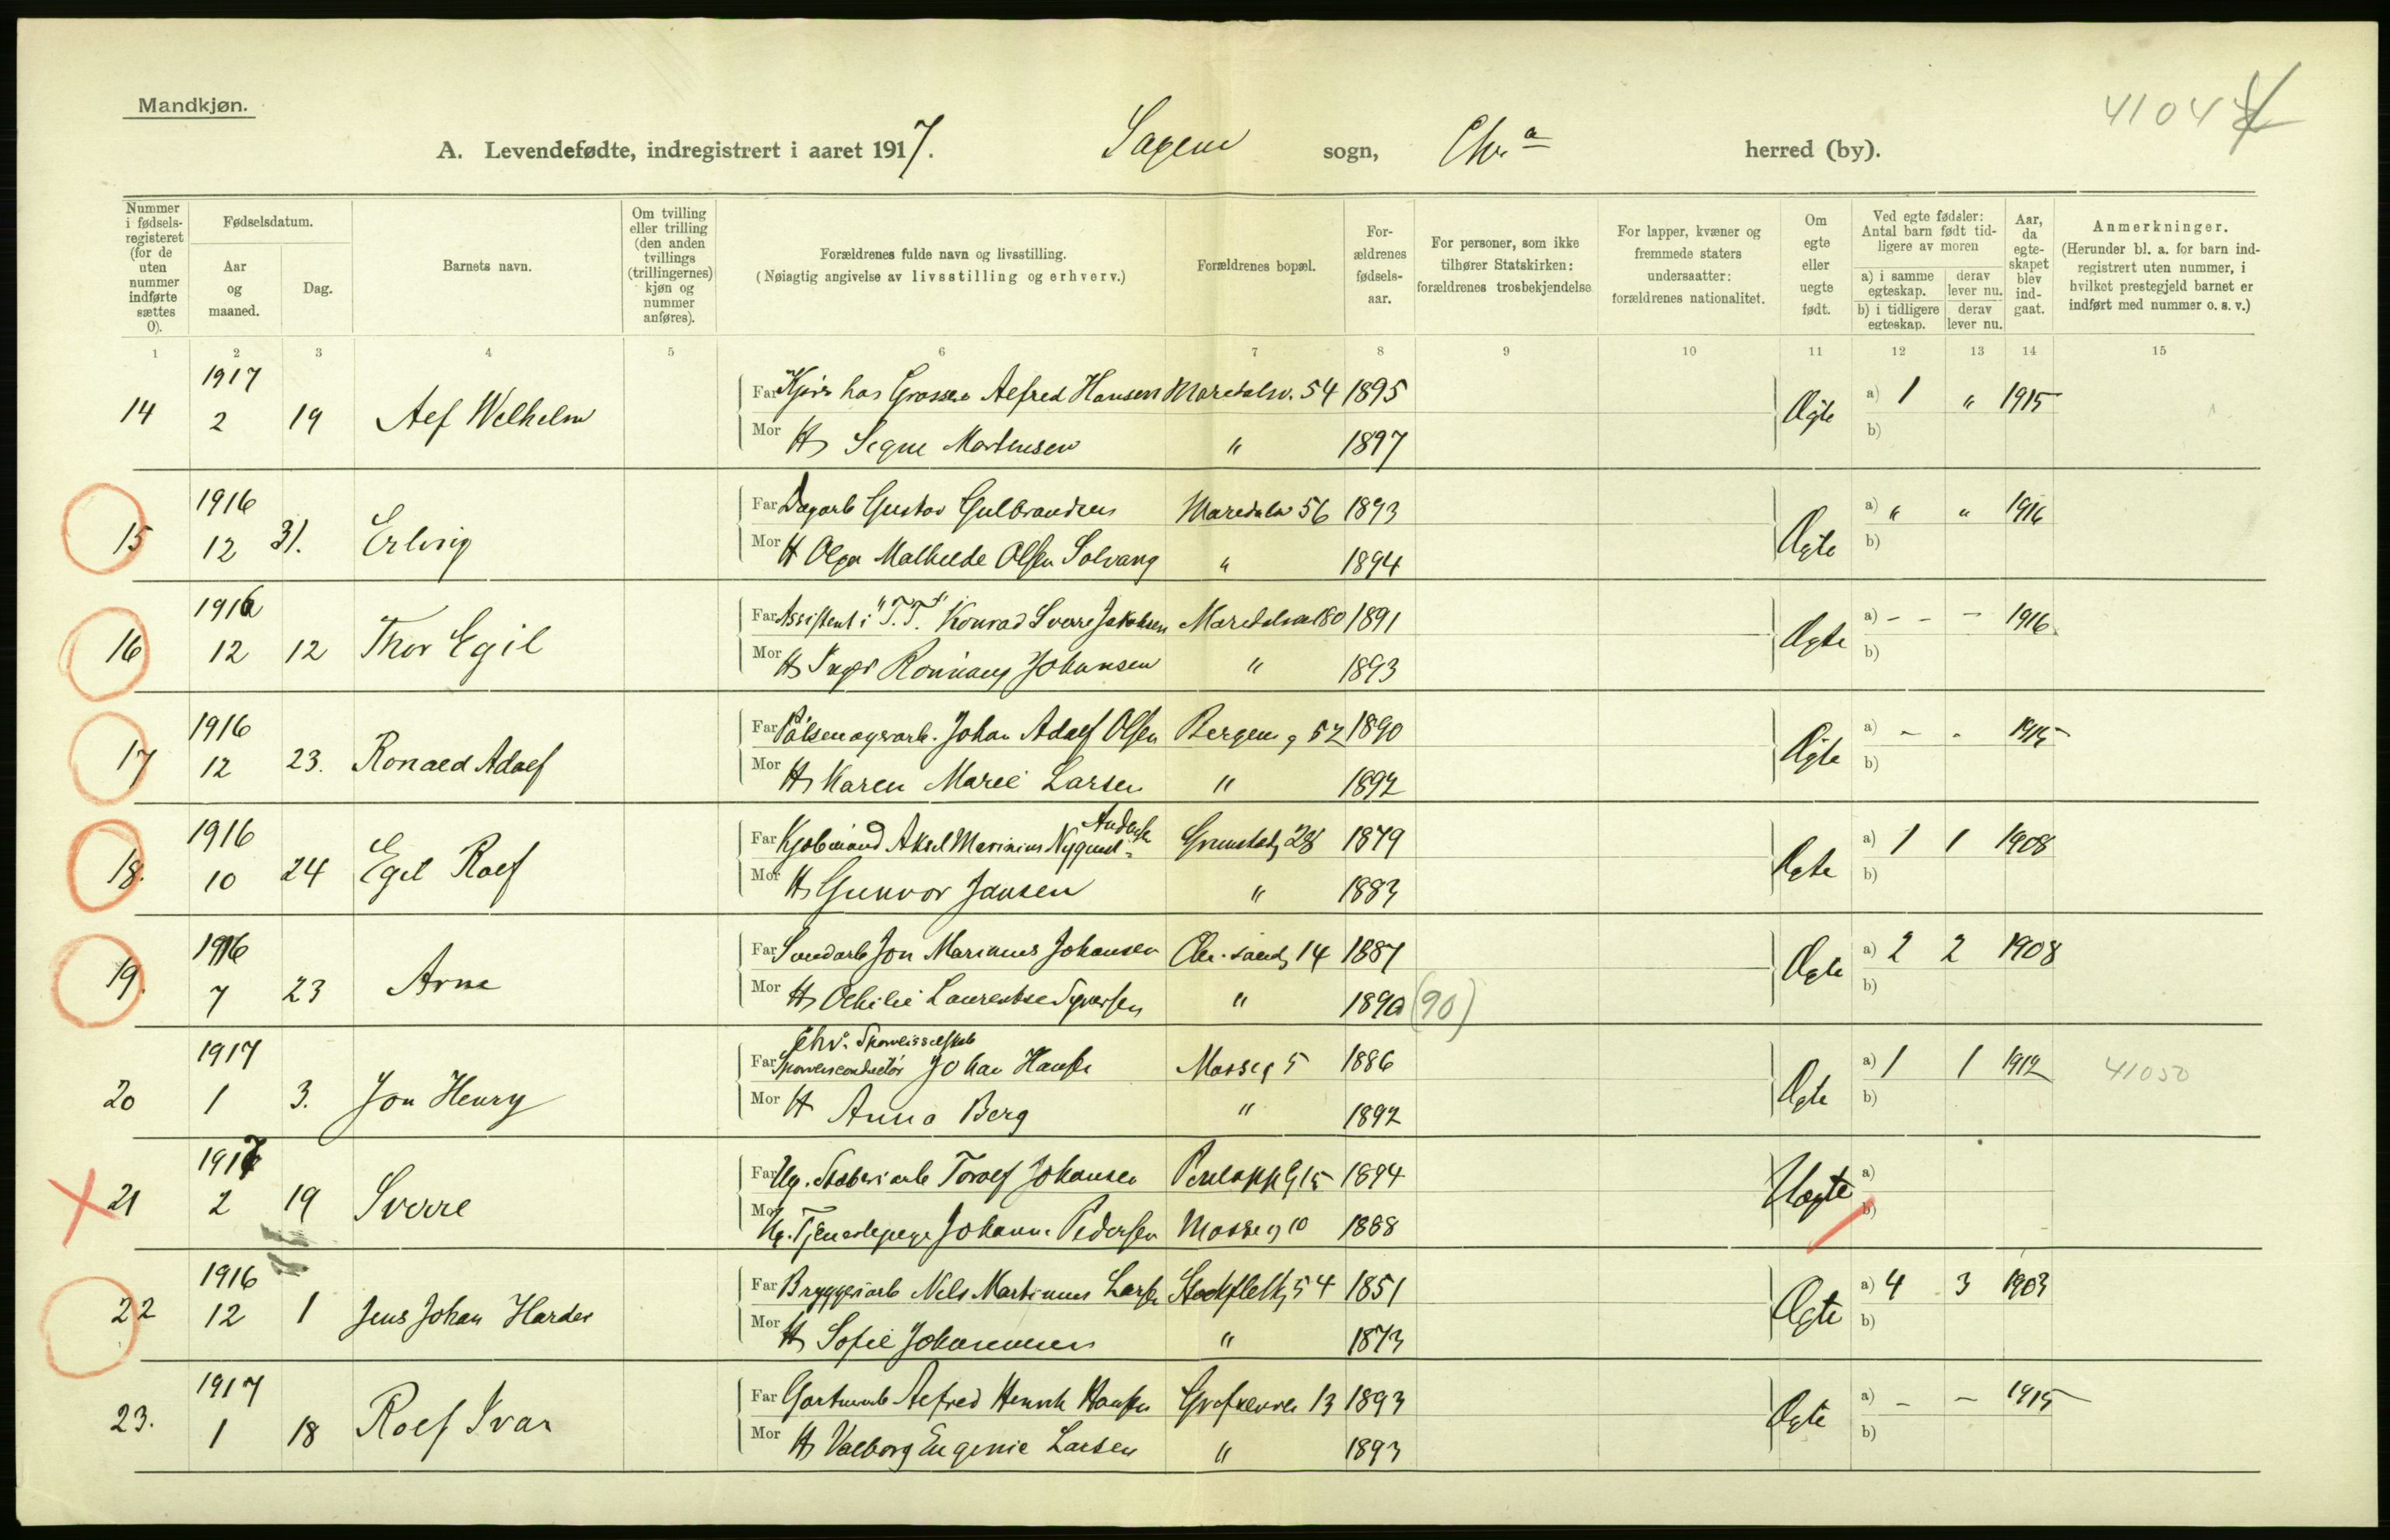 Mandkjøn.
A. Levendefødte, indregistrert i aaret 1917. Sagene sogn, Chr.a herred (by).
Nummer i fødselsregisteret (for de uten nummer indførte sættes 0).
Fødselsdatum.
Aar og maaned.
Dag.
Barnets navn.
Om tvilling eller trilling (den anden tvillings (trillingernes) kjøn og nummer anføres).
Forældrenes fulde navn og livsstilling.
(Nøiagtig angivelse av livsstilling og erhverv.)
Forældrenes bopæl.
Forældrenes fødselsaar.
For personer, som ikke tilhører Statskirken: forældrenes trosbekjendelse
For lapper, kvæner og fremmede staters undersaatter: forældrenes nationalitet.
Om egte eller uegte født.
Ved egte fødsler: Antal barn født tidligere av moren
a) i samme egteskap. derav lever nu.
b) i tidligere egteskap. derav lever nu.
Aar, da egteskapet blev indgaat.
Anmerkninger.
(Herunder bl. a. for barn indregistrert uten nummer, i hvilket prestegjeld barnet er indført med nummer o. s. v.)
1 2 3 4 5 6 7 8 9 10 11 12 13 14 15
1917
14 2 19 Alf Wilhelm Far hos Grosserer Alfred Hansen Maridalsv. 54 1895 Ægte a) 1 " 1915
Mor H Signe Martinsen " 1897 b)
1916
15 12 31. Erling Far Dagarb Gustav Gulbrandsen Maridalsv 56 1893 Ægte a) " " 1916
Mor H Olga Mathilde Olsen Solvang " 1894 b)
1916
16 12 12 Thor Egil Far Assistent i "T.T." Konrad Sverre Jakobsen Maridalsv 180 1891 Ægte a) - - - 1916.
Mor H Inga Johansen " 1893 b)
1916
17 12 23. Ronald Adolf Far Pølsemagerarb. Johan Adolf Olsen Bergens g 52 1890 Ægte a) - - 1915
Mor H Karen Marie Larsen " 1892 b)
1916
18. 10 24 Egil Rolf Far Kjøbmand Aksel Marinius Nyquist Andersen Grimstadg 28 1879 Ægte a) 1 1 1908
Mor H Gunvor Jansen " 1883 b)
1916
19. 7 23 Arne Far Jon Marinius Johansen Chr.sandg 14 1887 Ægte a) 2 2 1908
Mor H Othilie Laurentse Syversen " 1890 (90) b)
1917
20 1 3. Jon Henry Far Chr. Sporveisselskab Sporveiconductør Johan Hansen Mosseg 5 1886 Ægte a) 1 1 1912 41050
Mor H Anna Berg " 1892 b)
1917
21 2 19 Sverre Far Ug. Støberiarb Toralf Johansen 15 1894 Uægte a)
Mor Ug. Tjenestepige Johanne Pedersen Mosseg 10 1888 b)
1916
22 12 1 Jens Johan Harder Far Bryggeriarb Nils Martinius Larsen Stockflethg 54 1851 Ægte a) 4 3 1903
Mor H Sofie Johannessen " 1873 b)
1917
23. 1 18 Rolf Ivar Far Alfred Henrik Hansen 13 1893 Ægte a) - - 1915
Mor H Valborg Eugenie Larsen " 1893 b)